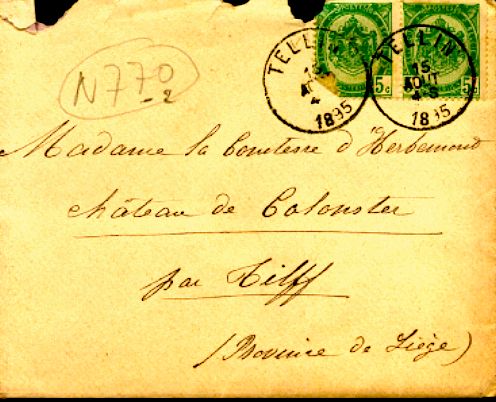 TELLIN
15
4
1895
5c
TELLIN
15
AOUT
4-S
1895
5c
N770
-2
Madame la Comtesse d'Herbemont
château de Colonster
par Tilff
(Province de Liège)